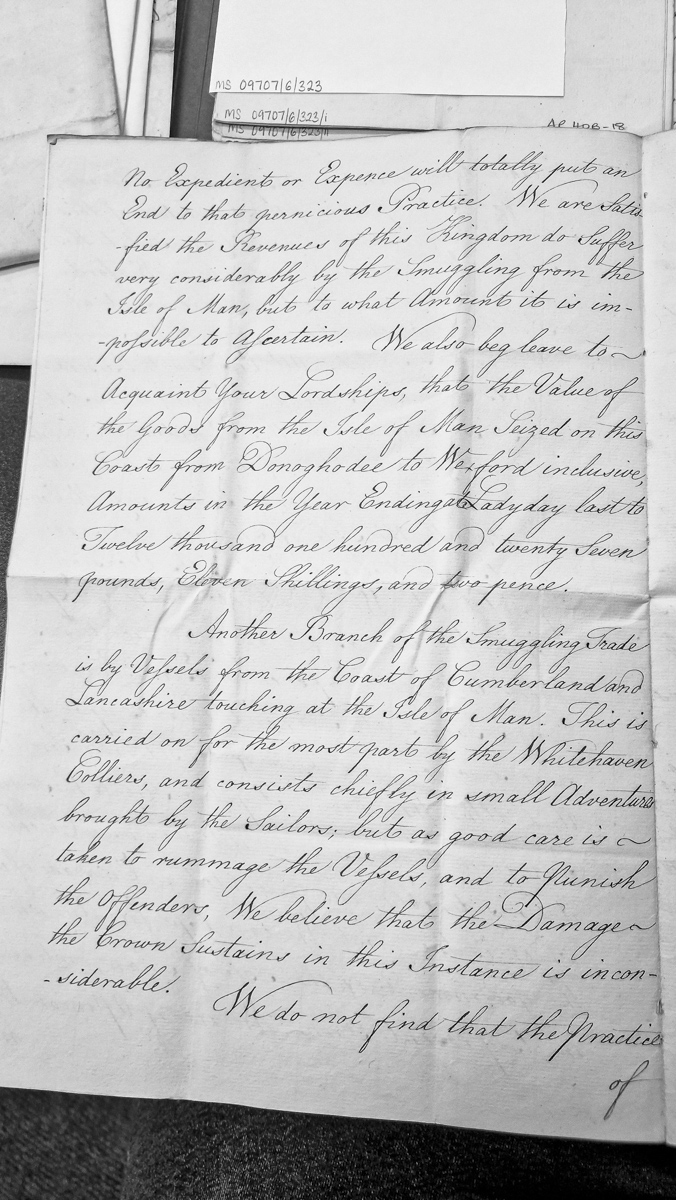 MS 09707/6/323
MS 09707/6/323/i
MS 09707/6/323/ii
AP 40B-18
No Expedient or Expence will totally put an
End to that pernicious Practice. We are Satis
-fied the Revenues of this Kingdom do Suffer
very considerably by the Smuggling from the
Isle of Man, but to what Amount it is im-
-possible to Ascertain. We also beg leave to
Acquaint Your Lordships, that the Value of
the Goods from the Isle of Man Seized on this
Coast from Donoghodee to Wexford inclusive,
Amounts in the Year Ending at Ladyday last to
Twelve thousand one hundred and twenty Seven
pounds, Eleven Shillings, and two pence.
Another Branch of the Smuggling Trade
is by Vessels from the Coast of Cumberland and
Lancashire touching at the Isle of Man. This is
carried on for the most part by the Whitehaven
Colliers, and consists chiefly in small Adventures
brought by the Sailors; but as good care is
taken to rummage the Vessels, and to Punish
the Offenders, We believe that the Damage
the Crown Sustains in this Instance is incon-
-siderable.
We do not find that the Practice
of